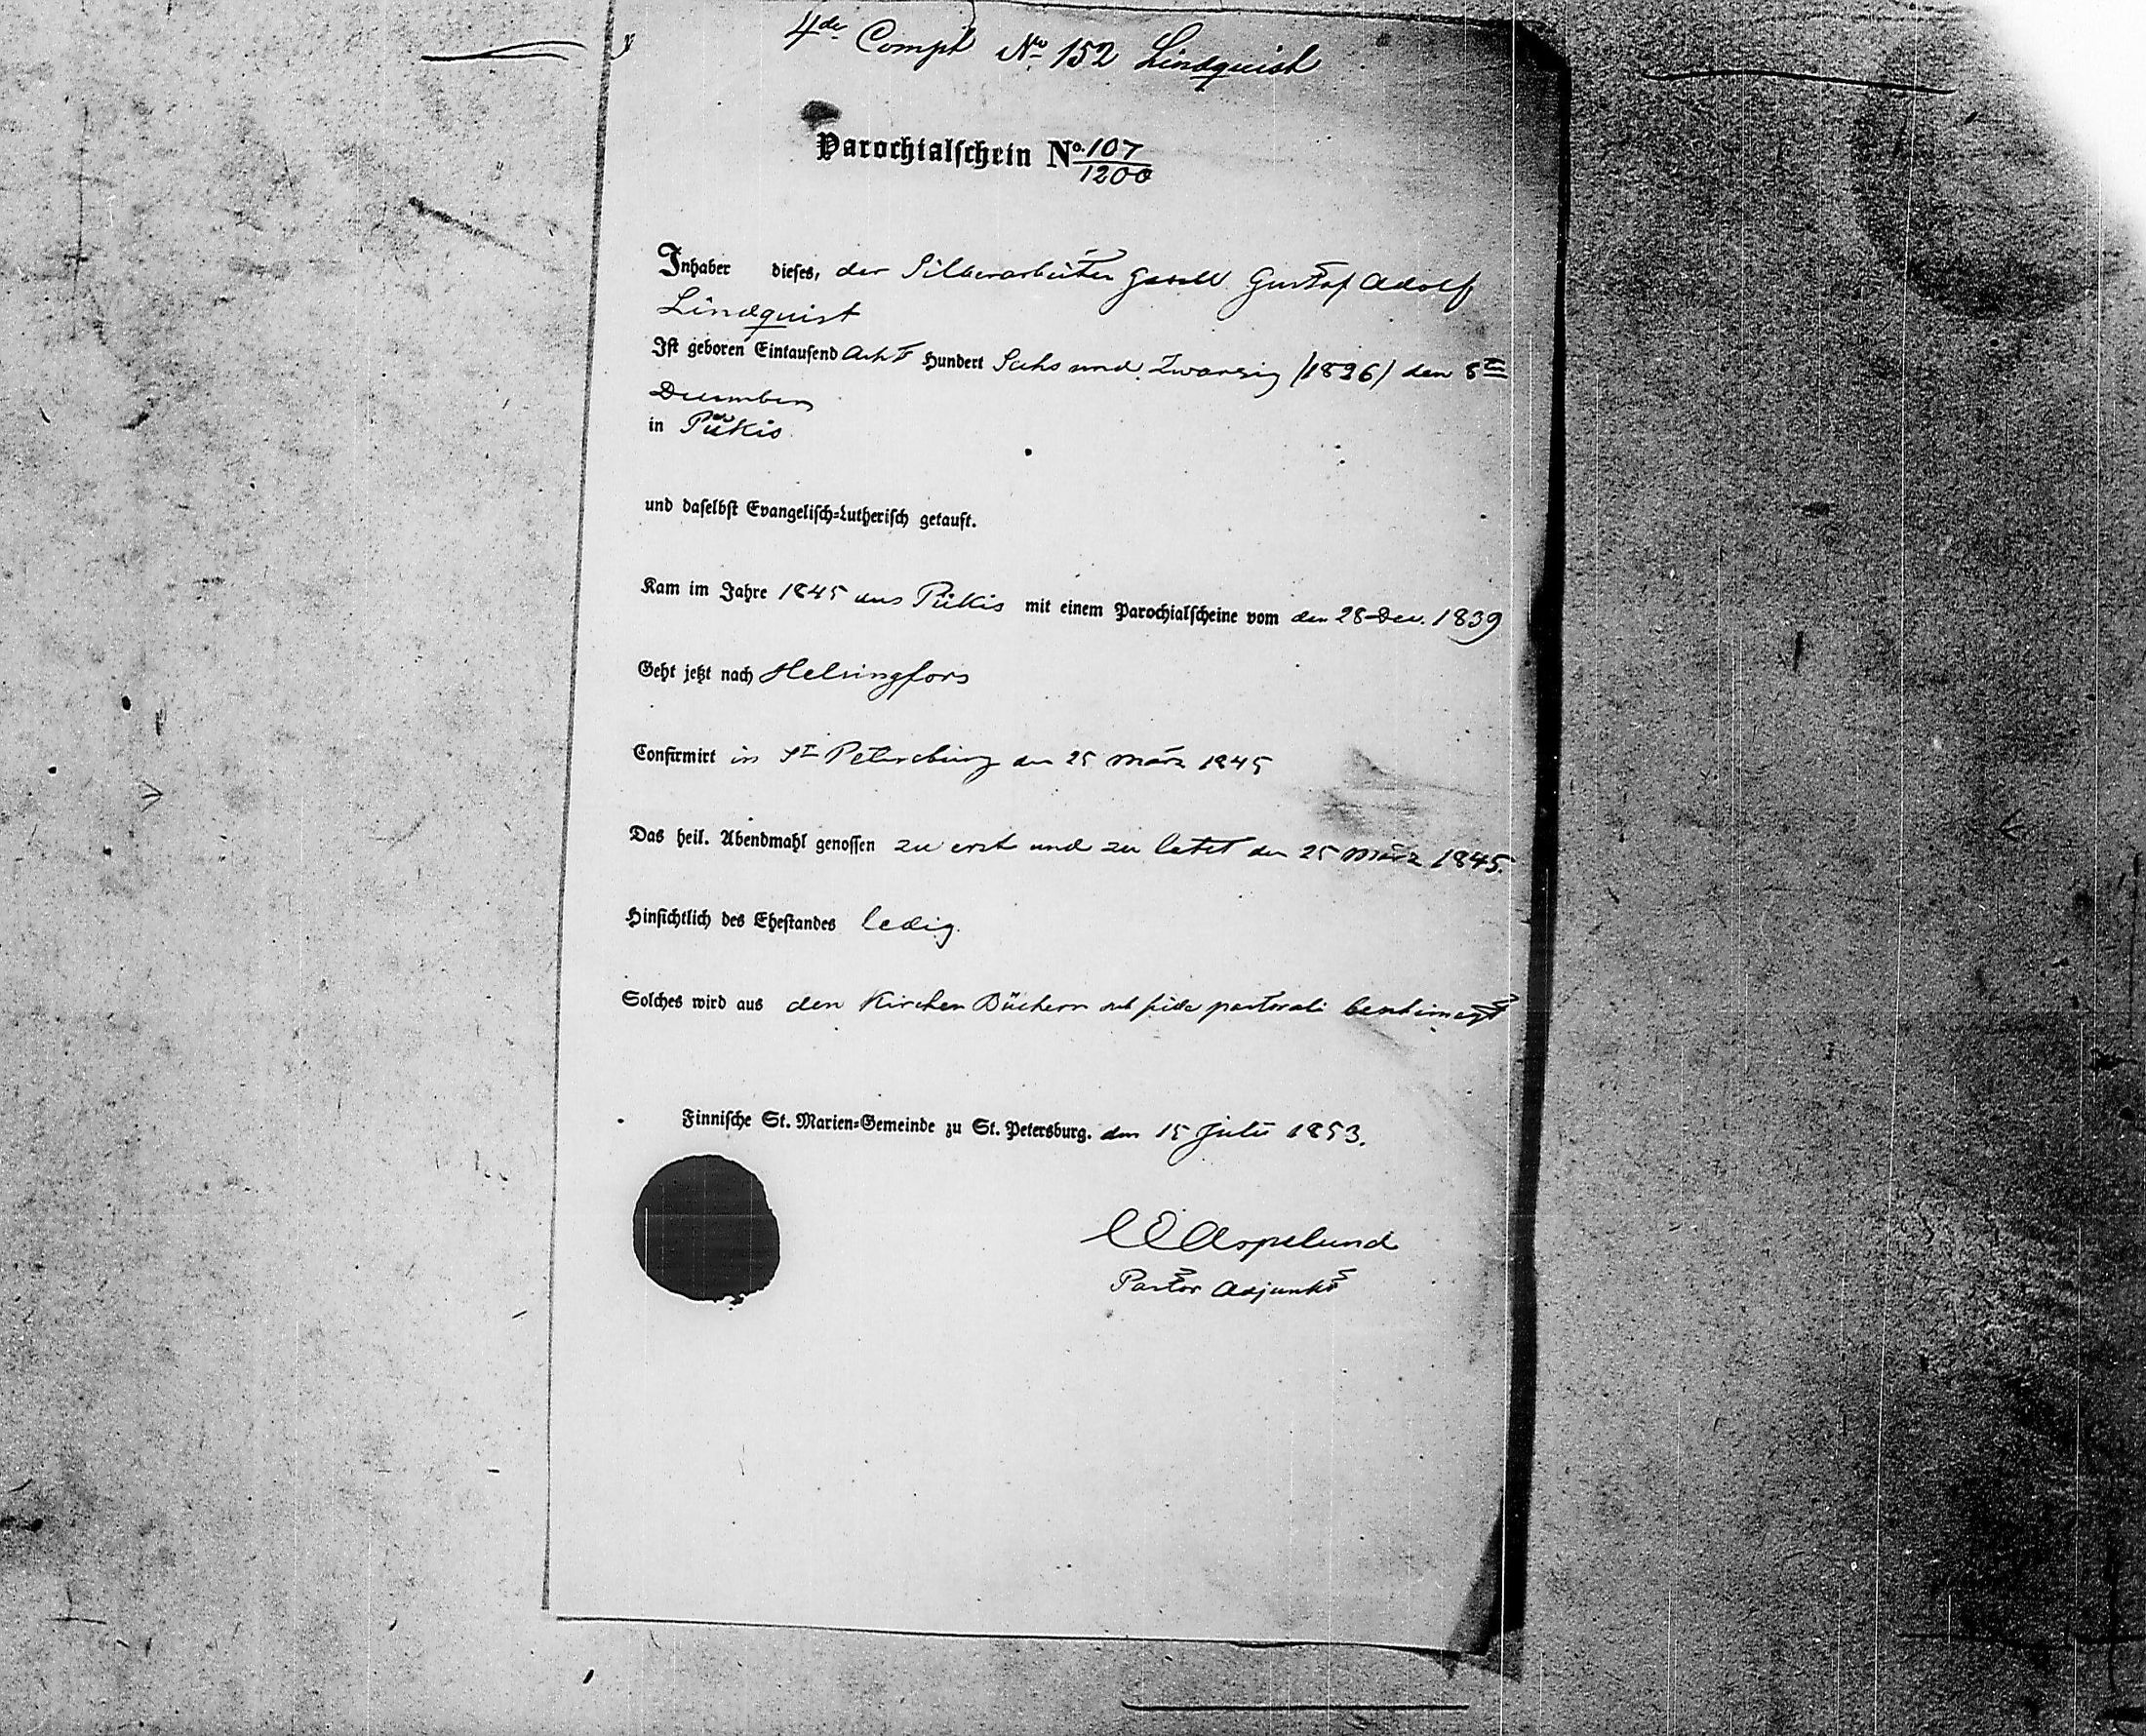 4de Compt No 152 Lindquist
Parochialschein No. 107/1200
Inhaber dieses, der Silberarbeiter Gesell Gustaf Adolf
Lindquist
Ist geboren Eintausend Acht Hundert Sechs und Zwanzig /1826/ den 8ten
December
in Pükis
und daselbst Evangelisch-Lutherisch getauft.
Kam im Jahre 1845 aus Pükis mit einem Parochialscheine vom den 28 Dec. 1839
Geht jetzt nach Helsingfors
Confirmirt in St Petersburg den 25 März 1845
Das heil. Abendmahl genossen zu erst und zu letzt den 25 März 1845.
Hinsichtlich des Ehestandes ledig.
Solches wird aus den Kirchen Büchern sub fide pastorali
Finnische St. Marien-Gemeinde zu St. Petersburg. den 15 Juli 1853.
Pastor Adjunkt